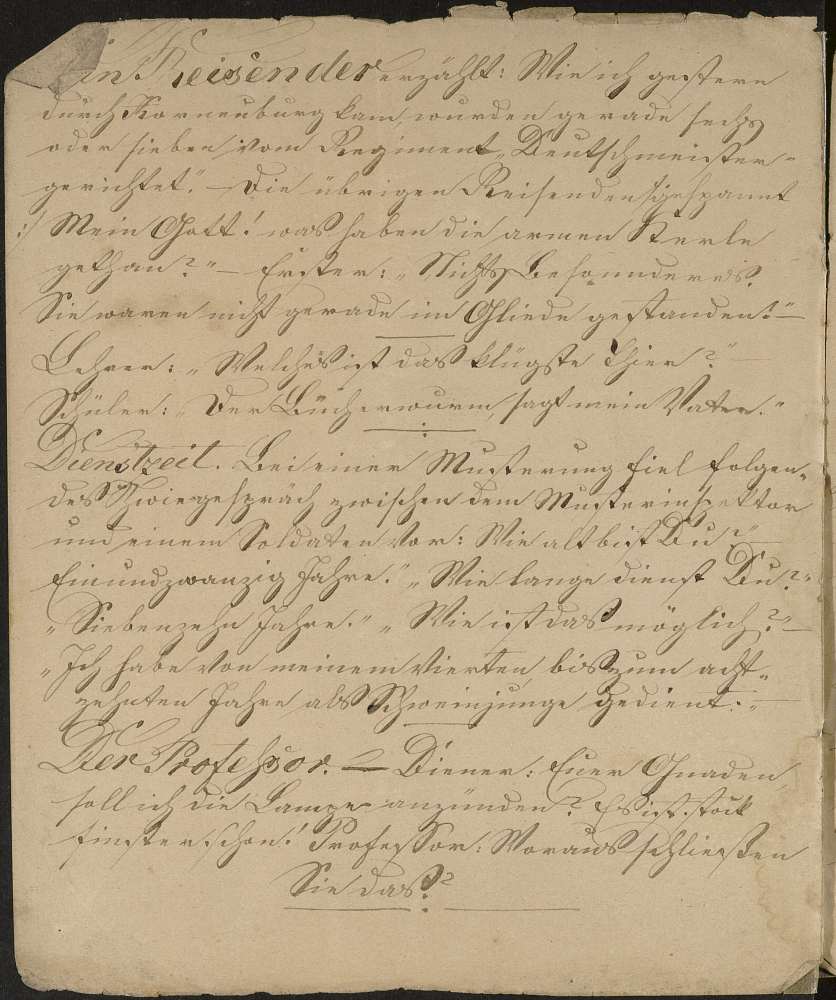 Ein Reisender erzählt: Wie ich gestern
durch Korneuburg kam, wurden gerade sechs
oder sieben vom Regiment „Deutschmeister“
gerichtet.“ – Die übrigen Reisenden (gespannt
:/ Mein Gott! was haben die armen Kerle
gethan?“ – Erster: „Nichts Besonderes.
Sie waren nicht gerade im Gliede gestanden.“ –
Lehrer: „Welches ist das klügste Thier?“
Schüler: „Der Bücherwurm, sagt mein Vater.“
Dienstzeit. Bei einer Musterung fiel folgen-
des Zwiegespräch zwischen dem Musterinspektor
und einem Soldaten vor: Wie alt bist Du?“ –
Einundzwanzig Jahre.“ „Wie lange dienst Du?“
„Siebenzehn Jahre.“ „Wie ist das möglich?“ –
„Ich habe von meinem vierten bis zum acht-
zehnten Jahre als Schweinjunge gedient.“
Der Professor. – Diener: Euer Gnaden
soll ich die Lampe anzünden? Es ist stock
finster schon! Professor: Woraus schließen
Sie das?